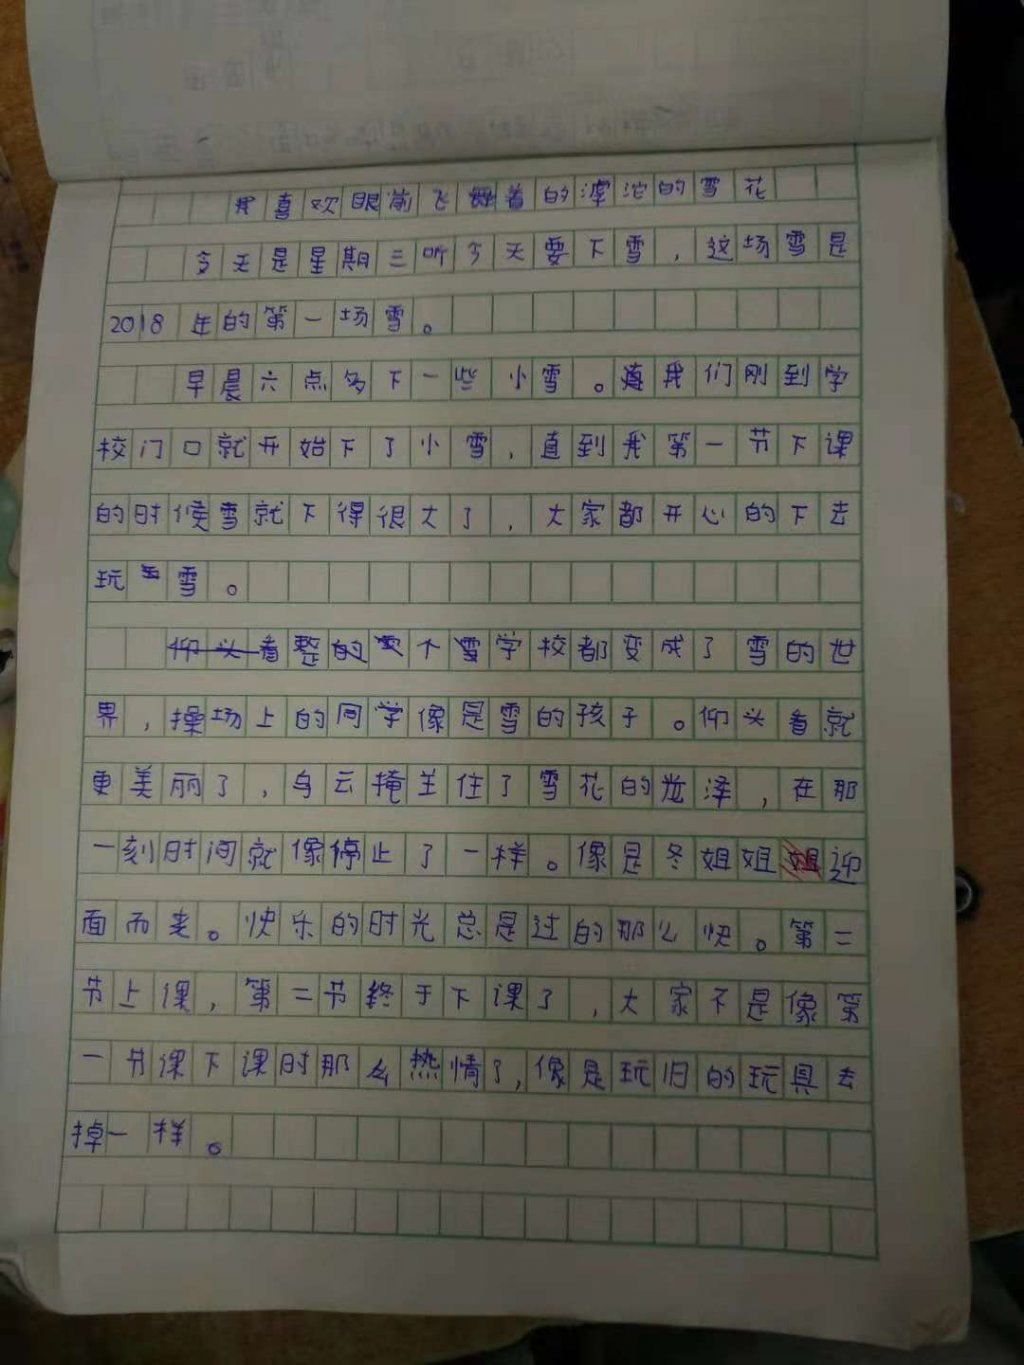 我喜欢眼前飞舞着的滹沱的雪花
今天是星期三听今天要下雪，这场雪是
2018年的第一场雪。
早晨六点多下一些小雪。我们刚到学
校门口就开始下了小雪，直到我第一节下课
的时候雪就下得很大了，大家都开心的下去
玩雪。
整个学校都变成了雪的世
界，操场上的同学像是雪的孩子。仰头看就
更美丽了，乌云掩盖住了雪花的光泽，在那
一刻时间就像停止了一样。像是冬姐姐迎
面而来。快乐的时光总是过的那么快。第二
节上课，第二节终于下课了，大家不是像第
一节课下课时那么热情了，像是玩旧的玩具去
掉一样。